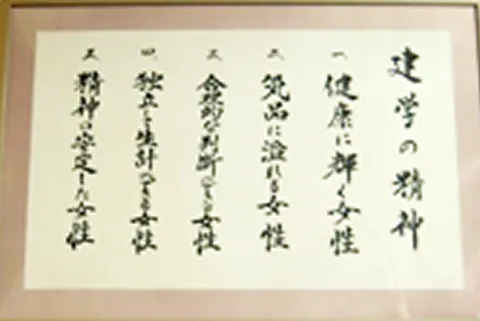 建学の精神
一、健康に輝く女性
二、気品に溢れる女性
三、合理的な判断のできる女性
四、独立した生計のできる女性
五、精神の安定した女性